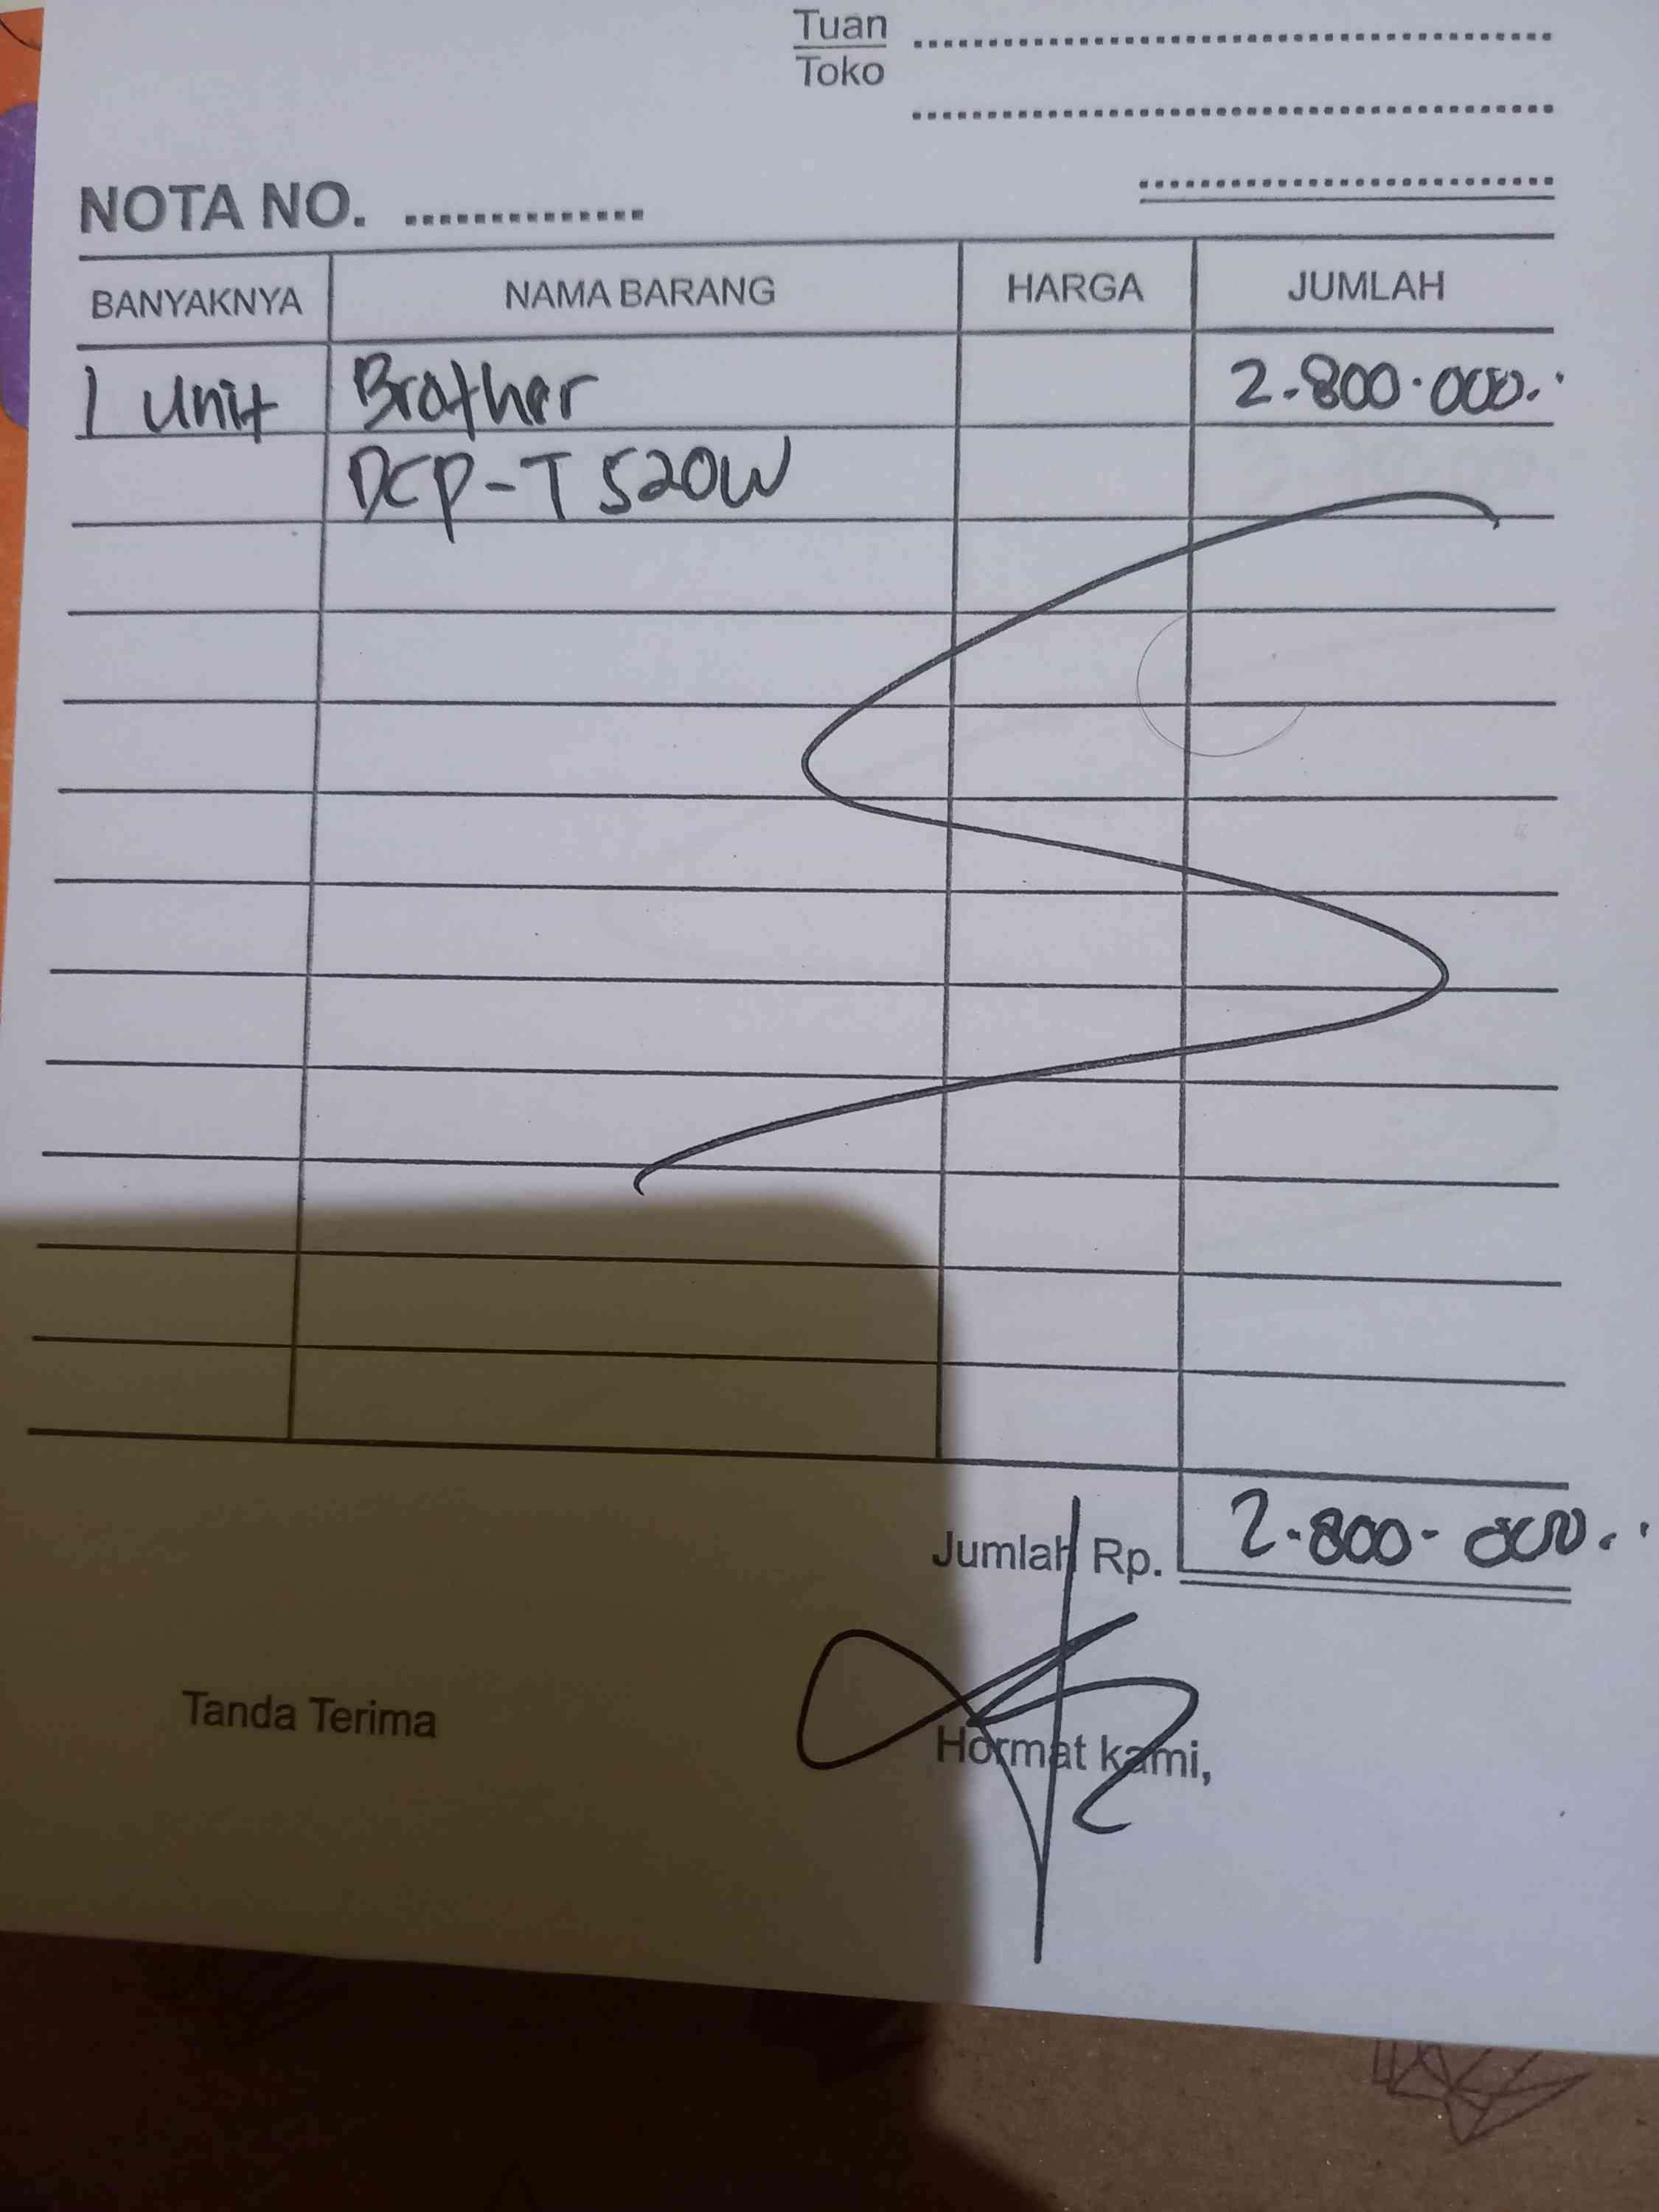 Tuan
Toko
NOTA NO.
BANYAKNYA NAMA BARANG HARGA JUMLAH
1 Unit Brother 2.800.000.
DCP-T520W
Jumlah Rp. 2.800.000.
Tanda Terima
Hormat kami,